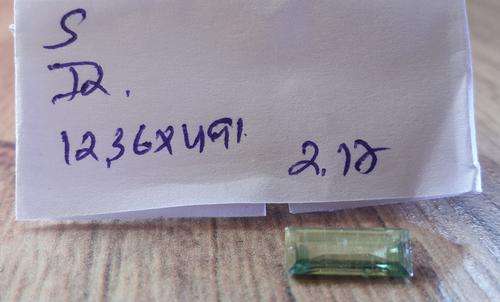 S
I2.
12,36x491.
2.18